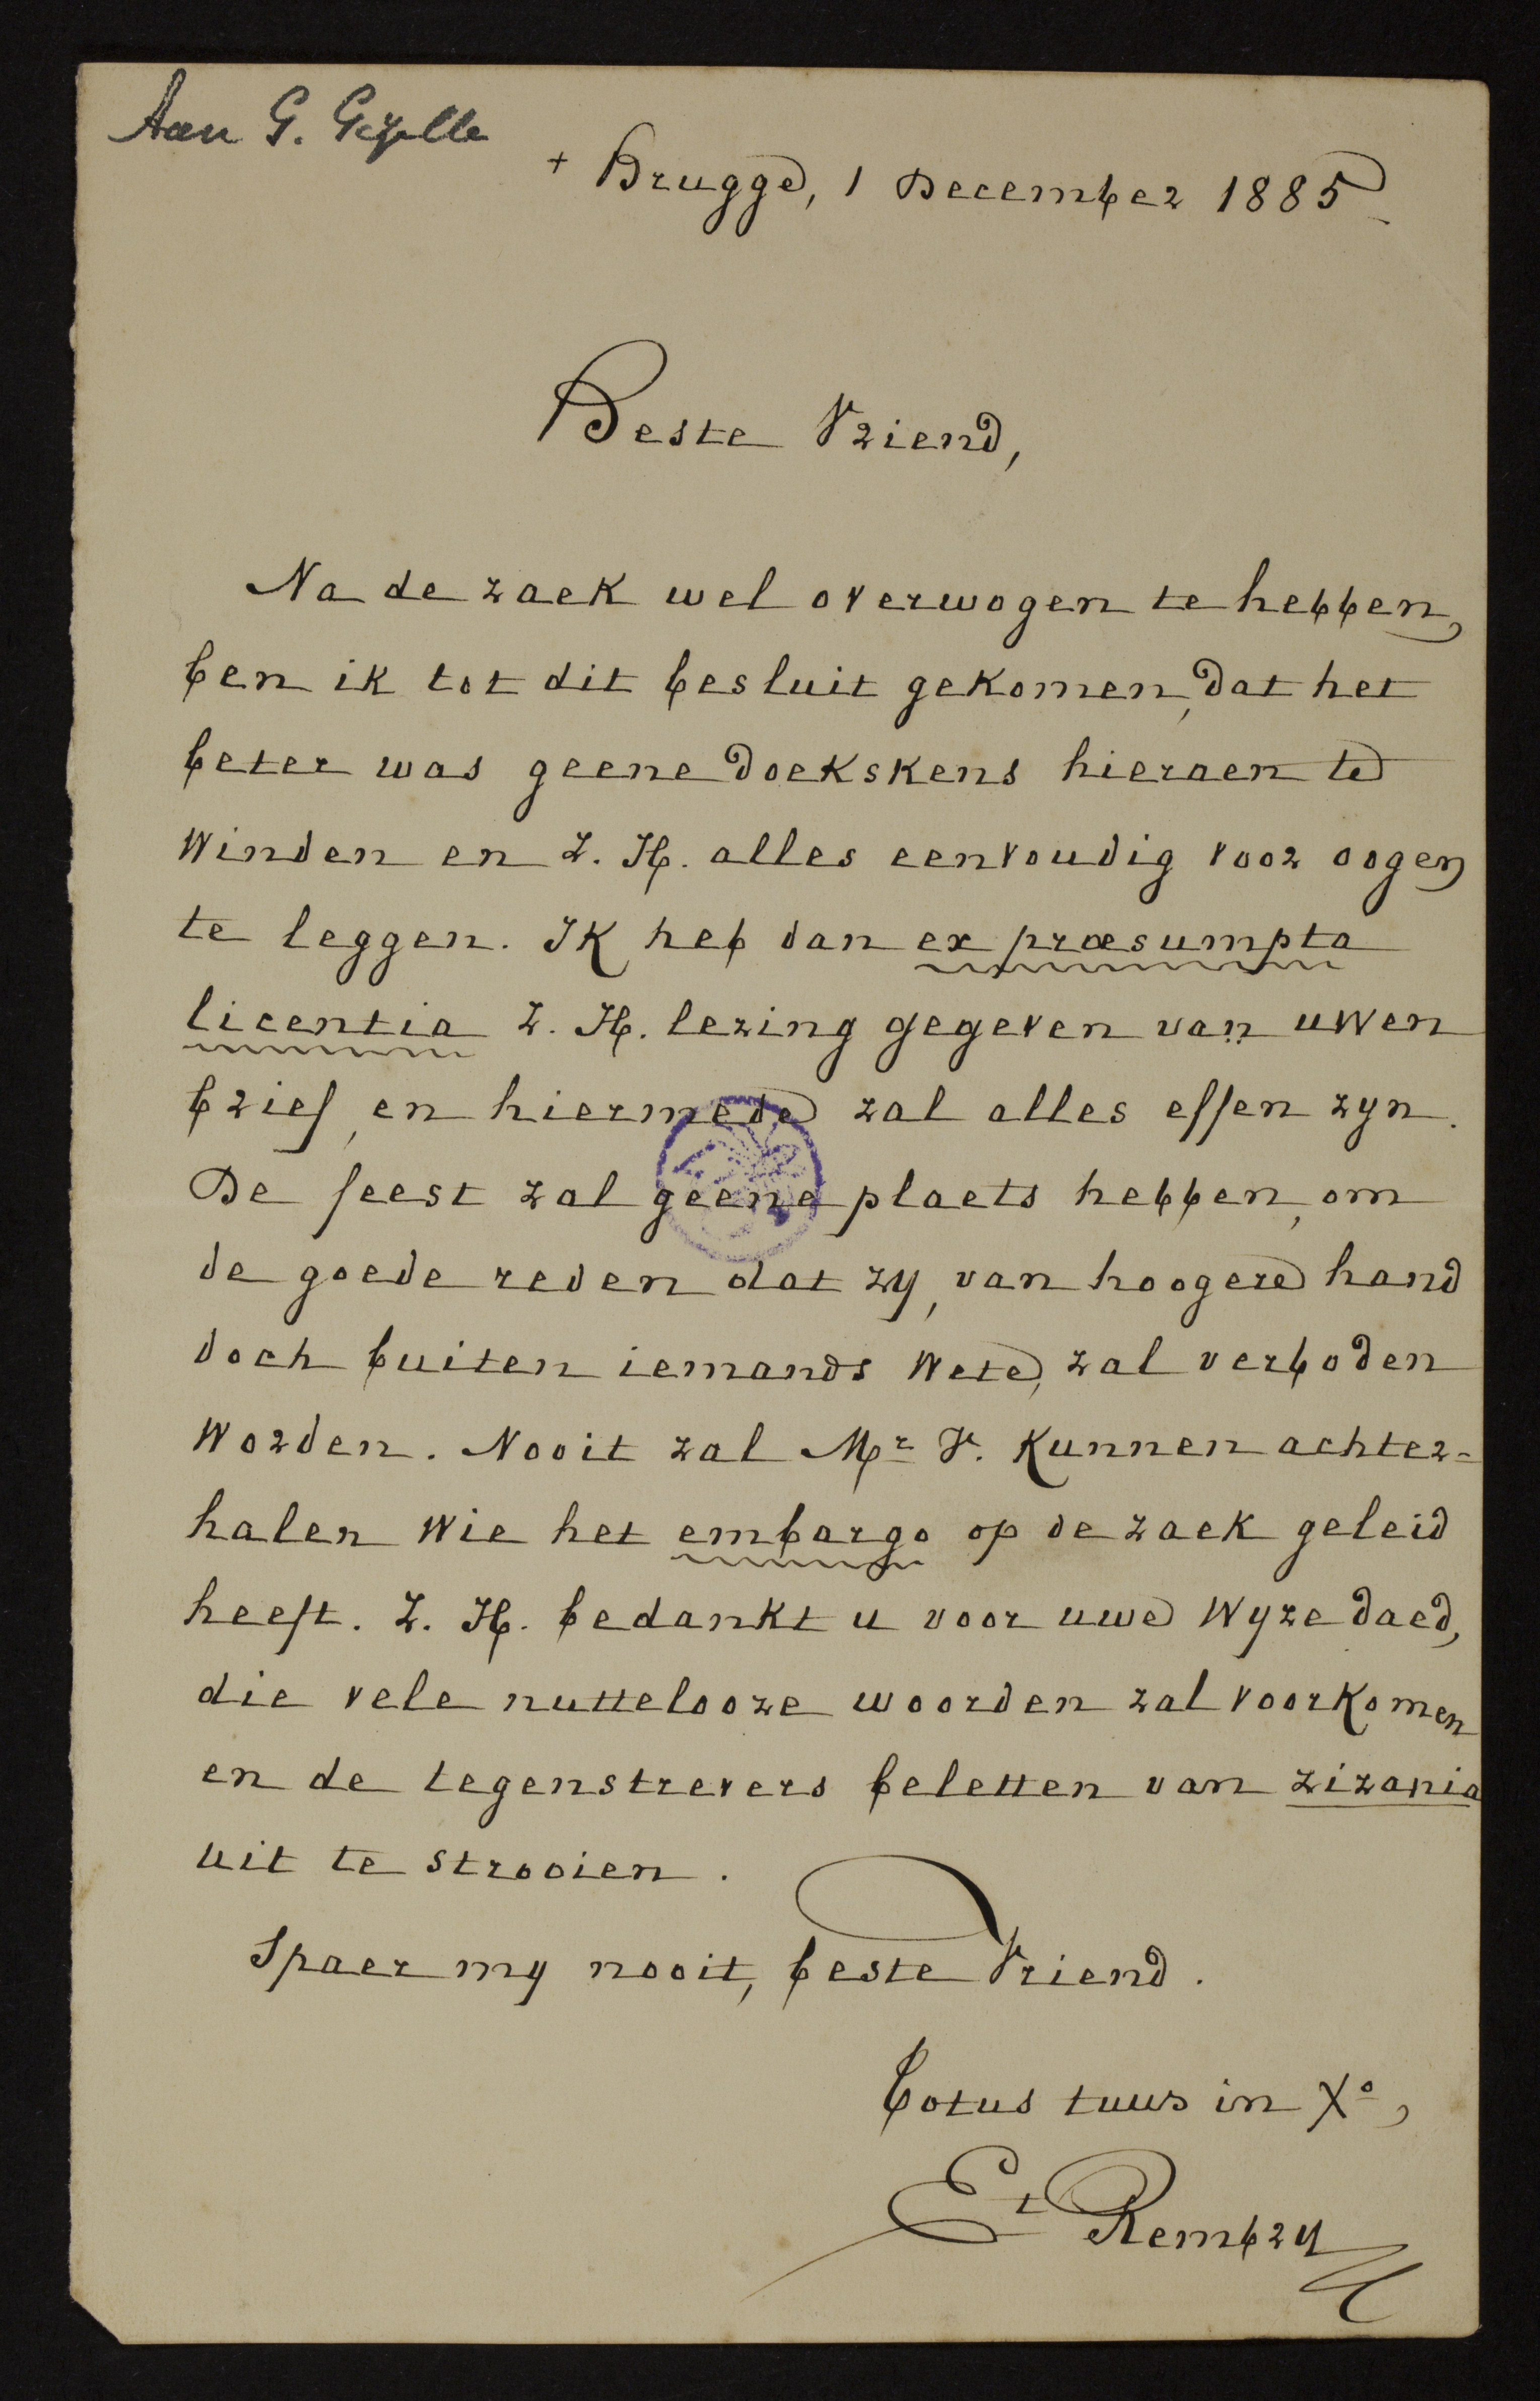 Aan G. Gezelle
+ Brugge, 1 December 1885
Beste Vriend,
Na de zaek wel overwogen te hebben,
ben ik tot dit besluit gekomen, dat het
beter was geene doekskens hieraen te
winden en Z. H. alles eenvoudig voor oogen
te leggen. Ik heb dan ex præsumpta
licentia Z. H. lezing gegeven van uwen
brief, en hiermede zal alles effen zyn.
De feest zal geene plaets hebben, om
de goede reden dat zy, van hoogere hand
doch buiten iemands wete, zal verboden
worden. Nooit zal Mr V. kunnen achter-
halen wie het embargo op de zaek geleid
heeft. Z. H. bedankt u voor uwe wyze daed,
die vele nuttelooze woorden zal voorkomen
en de tegenstrevers beletten van zizania
uit te strooien.
Spaer my nooit, beste Vriend.
Totus tuus in Xo,
Et Rembry